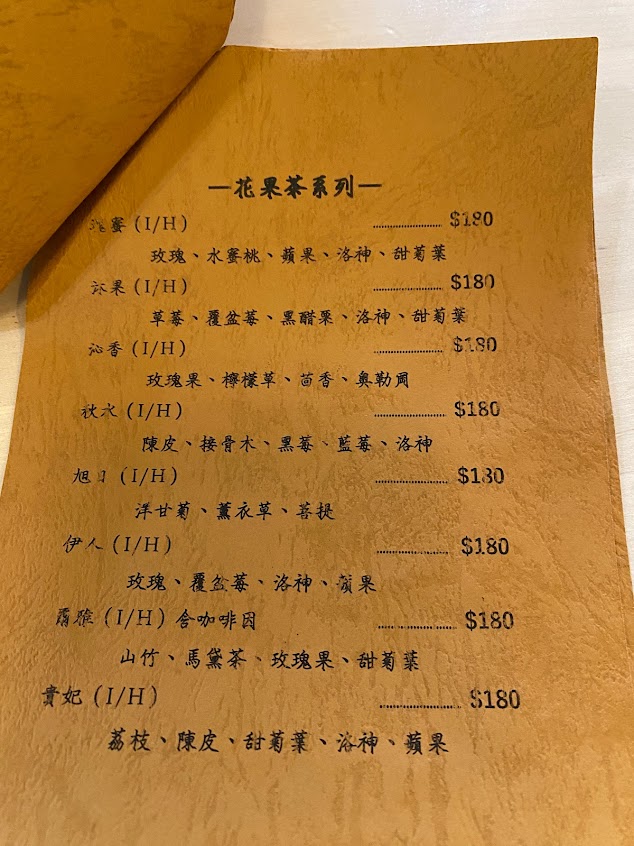 —花果茶系列—
蜜 (I/H) ........................ $180
玫瑰、水蜜桃、蘋果、洛神、甜菊葉
沐果 (I/H) ........................ $180
草莓、覆盆莓、黑醋栗、洛神、甜菊葉
沁香 (I/H) ........................ $180
玫瑰果、檸檬草、茴香、奧勒岡
秋水 (I/H) ........................ $180
陳皮、接骨木、黑莓、藍莓、洛神
旭日 (I/H) ........................ $180
洋甘菊、薰衣草、菩提
伊人 (I/H) ........................ $180
玫瑰、覆盆莓、洛神、蘋果
(I/H) 含咖啡因 ........................ $180
山竹、馬黛茶、玫瑰果、甜菊葉
貴妃 (I/H) ........................ $180
荔枝、陳皮、甜菊葉、洛神、蘋果